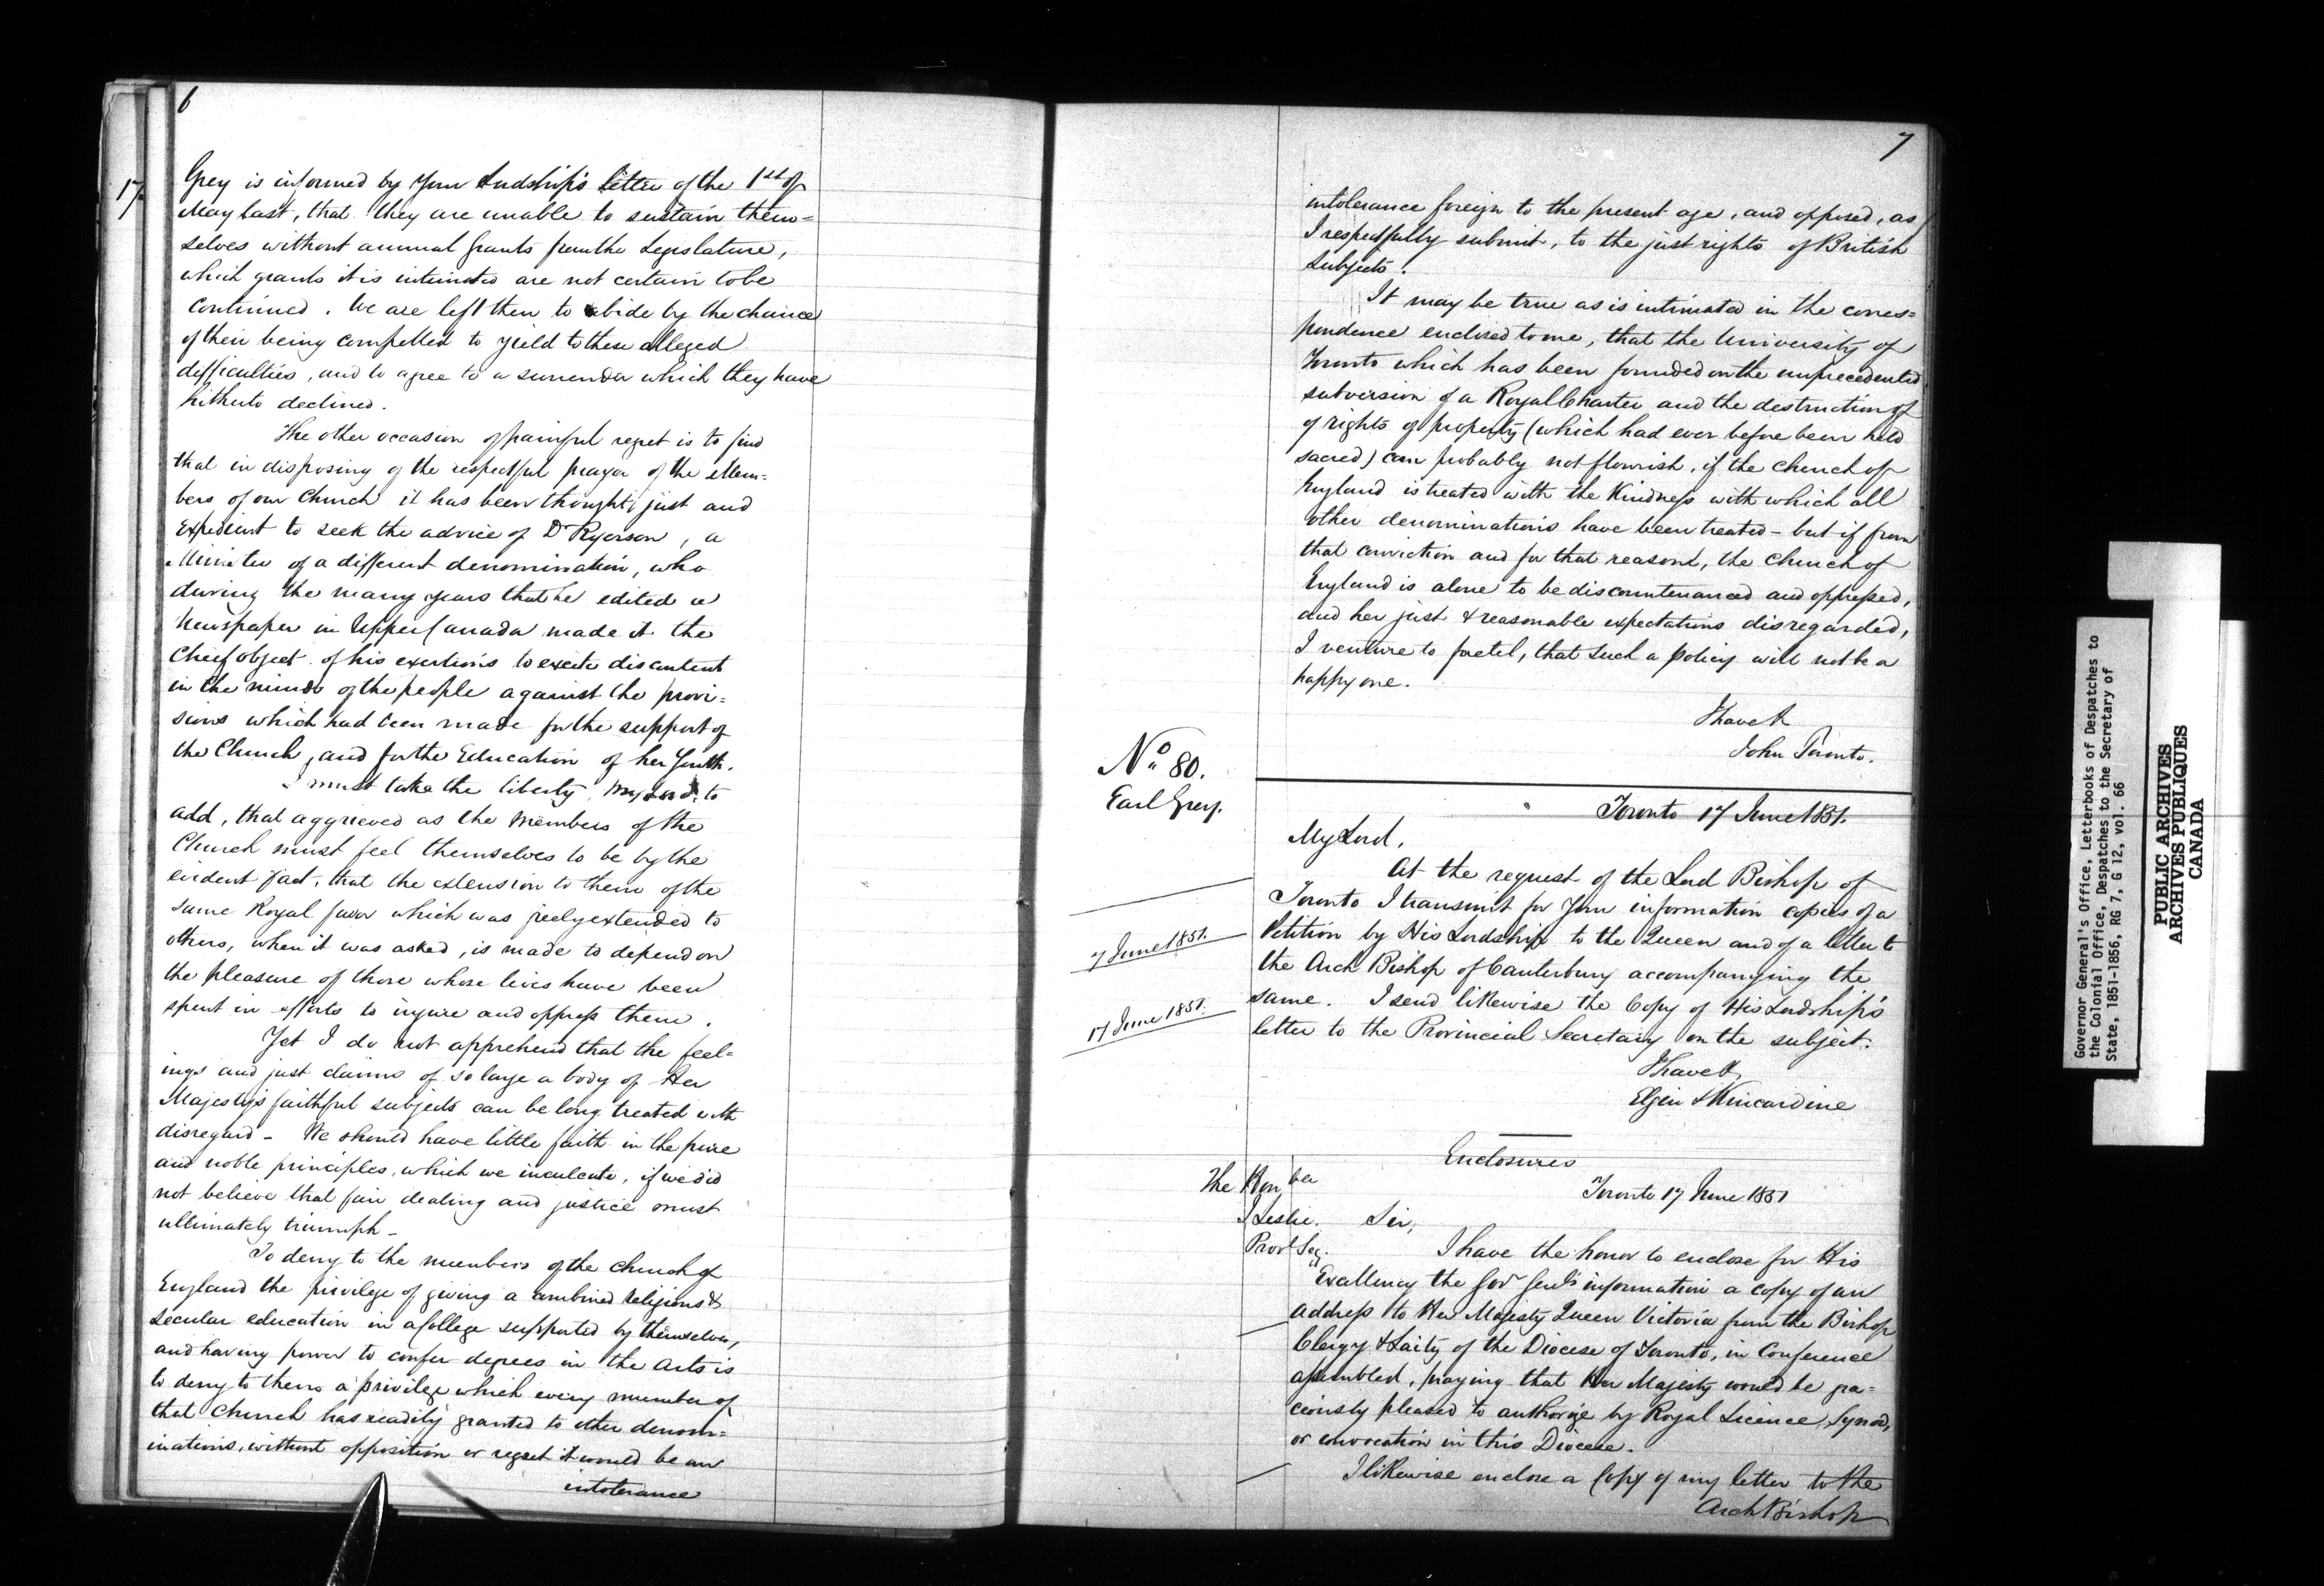 6
17
Grey is informed by Your Lordship's letter of the 1st of
May last, that they are unable to sustain them=
selves without annual grants from the Legislature,
which grants it is intimated are not certain to be
continued. We are left then to abide by the chance
of their being compelled to yield to these alleged
difficulties, and to agree to a surrender which they have
hitherto declined.
The other occasion of painful regret is to find
that in disposing of the respectful prayer of the Mem=
bers of our Church it has been thought just and
expedient to seek the advice of Dr Ryerson, a
Minister of a different denomination, who
during the many years that he edited a
Newspaper in Upper Canada made it the
Chief object of his exertions to excite discontent
in the minds of the people against the provi=
sions which had been made for the support of
the Church, and for the Education of her Youth.
I must take the liberty, My Lord, to
add, that aggrieved as the Members of the
Church must feel themselves to be by the
evident fact, that the extension to them of the
same Royal favor which was freely extended to
others, when it was asked, is made to depend on
the pleasure of those whose lives have been
spent in efforts to injure and oppress them.
Yet I do not apprehend that the feel=
ings and just claims of so large a body of Her
Majesty's faithful subjects can be long treated with
disregard - We should have little faith in the pure
and noble principles, which we inculcate, if we did
not believe that fair dealing and justice must
ultimately triumph -
To deny to the members of the Church of
England the privilege of giving a combined religious &
secular education in a College supported by themselves,
and having power to confer degrees in the Arts is
to deny to them a privilege which every member of
that Church has readily granted to other denom=
inations, without opposition or regret it would be an
intolerance
7
intolerance foreign to the present age, and opposed, as
I respectfully submit, to the just rights of British
subjects.
It may be true as is intimated in the corres=
pondence enclosed to me, that the University of
Toronto which has been founded on the unprecedented
subversion of a Royal Charter and the destruction of
of rights of property (which had ever before been held
sacred) can probably not flourish, if the Church of
England is treated with the kindness with which all
other denominations have been treated - but if from
that conviction and for that reason, the Church of
England is alone to be discountenanced and oppressed,
and her just & reasonable expectations disregarded,
I venture to foretel, that such a policy will not be a
happy one.
I have &
John Toronto.
No 80.
Earl Grey.
Toronto 17 June 1851.
My Lord,
At the request of the Lord Bishop of
Toronto I transmit for Your information copies of a
7 June 1851.
Petition by His Lordship to the Queen and of a letter to
the Arch Bishop of Canterbury accompanying the
17 June 1851.
same. I send likewise the Copy of His Lordship's
letter to the Provincial Secretary on the subject.
I have &
Elgin & Kincardine
Enclosures
The Honble
J Leslie.
Provl Sec.
Toronto 17 June 1851
Sir,
I have the honor to enclose for His
Excellency the Govr Genl's information a copy of an
address to Her Majesty Queen Victoria from the Bishop
Clergy & Laity of the Diocese of Toronto, in Conference
assembled, praying that Her Majesty would be gra=
ciously pleased to authorize by Royal Licence, Synod,
or convocation in this Diocese.
I likewise enclose a Copy of my letter to the
Arch Bishop
Governor General's Office, Letterbooks of Despatches to
the Colonial Office, Despatches to the Secretary of
State, 1851-1856, RG 7, G 12, vol. 66
PUBLIC ARCHIVES
ARCHIVES PUBLIQUES
CANADA